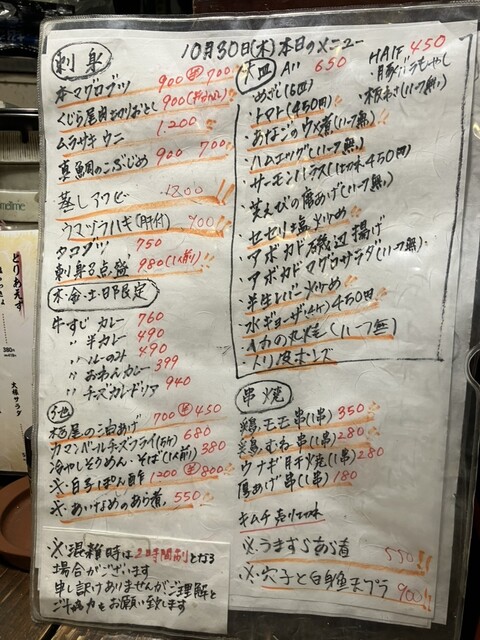 10月30日(木)本日のメニュー
刺身
本マグロブツ 900 半700
くじら尾肉切りおとし 900
ムラサキウニ 1.200
真鯛のこぶじめ 900 700
蒸しアワビ 1200
ウマヅラハギ(肝付) 900
タコブツ 750
刺身5点盛 980(1人前)
木・金・土・日限定
牛すじカレー 760
〃 半カレー 490
〃 ルーのみ 490
〃 おわんカレー 399
〃 チーズカレードリア 940
その他
栃尾の油あげ 700 半450
カマンベールチーズフライ 680
冷やしそうめん・そば(1人前) 380
※白子ぽん酢 1200 半800
※あいなめのあら煮 550
※混雑時は2時間制となる
場合がございます
申し訳ありませんがご理解と
ご協力をお願い致します
小皿 All 650 HALF 450
・めざし(6匹)
・豚バラもやし
・トマト(450円)
・根わさ(ハーフ無)
・あなごのウメ煮(ハーフ無)
・ハムエッグ(ハーフ無)
・サーモンハラス 450円
・芝えびの唐あげ(ハーフ無)
・セセリ塩炒め
・アボカド磯辺揚げ
・アボカドマグロサラダ(ハーフ無)
・半生レバー炒め
・水ギョーザ 450円
・イカの丸焼(ハーフ無)
トリ皮ポンズ
串焼
鶏モモ串(1串) 350
鶏むね串(1串) 280
ウナギ肝焼(1串) 280
厚あげ串(1串) 180
キムチ売り切れ
※うまずらあら煮 550
※穴子と白身魚天プラ 900
とりあえず